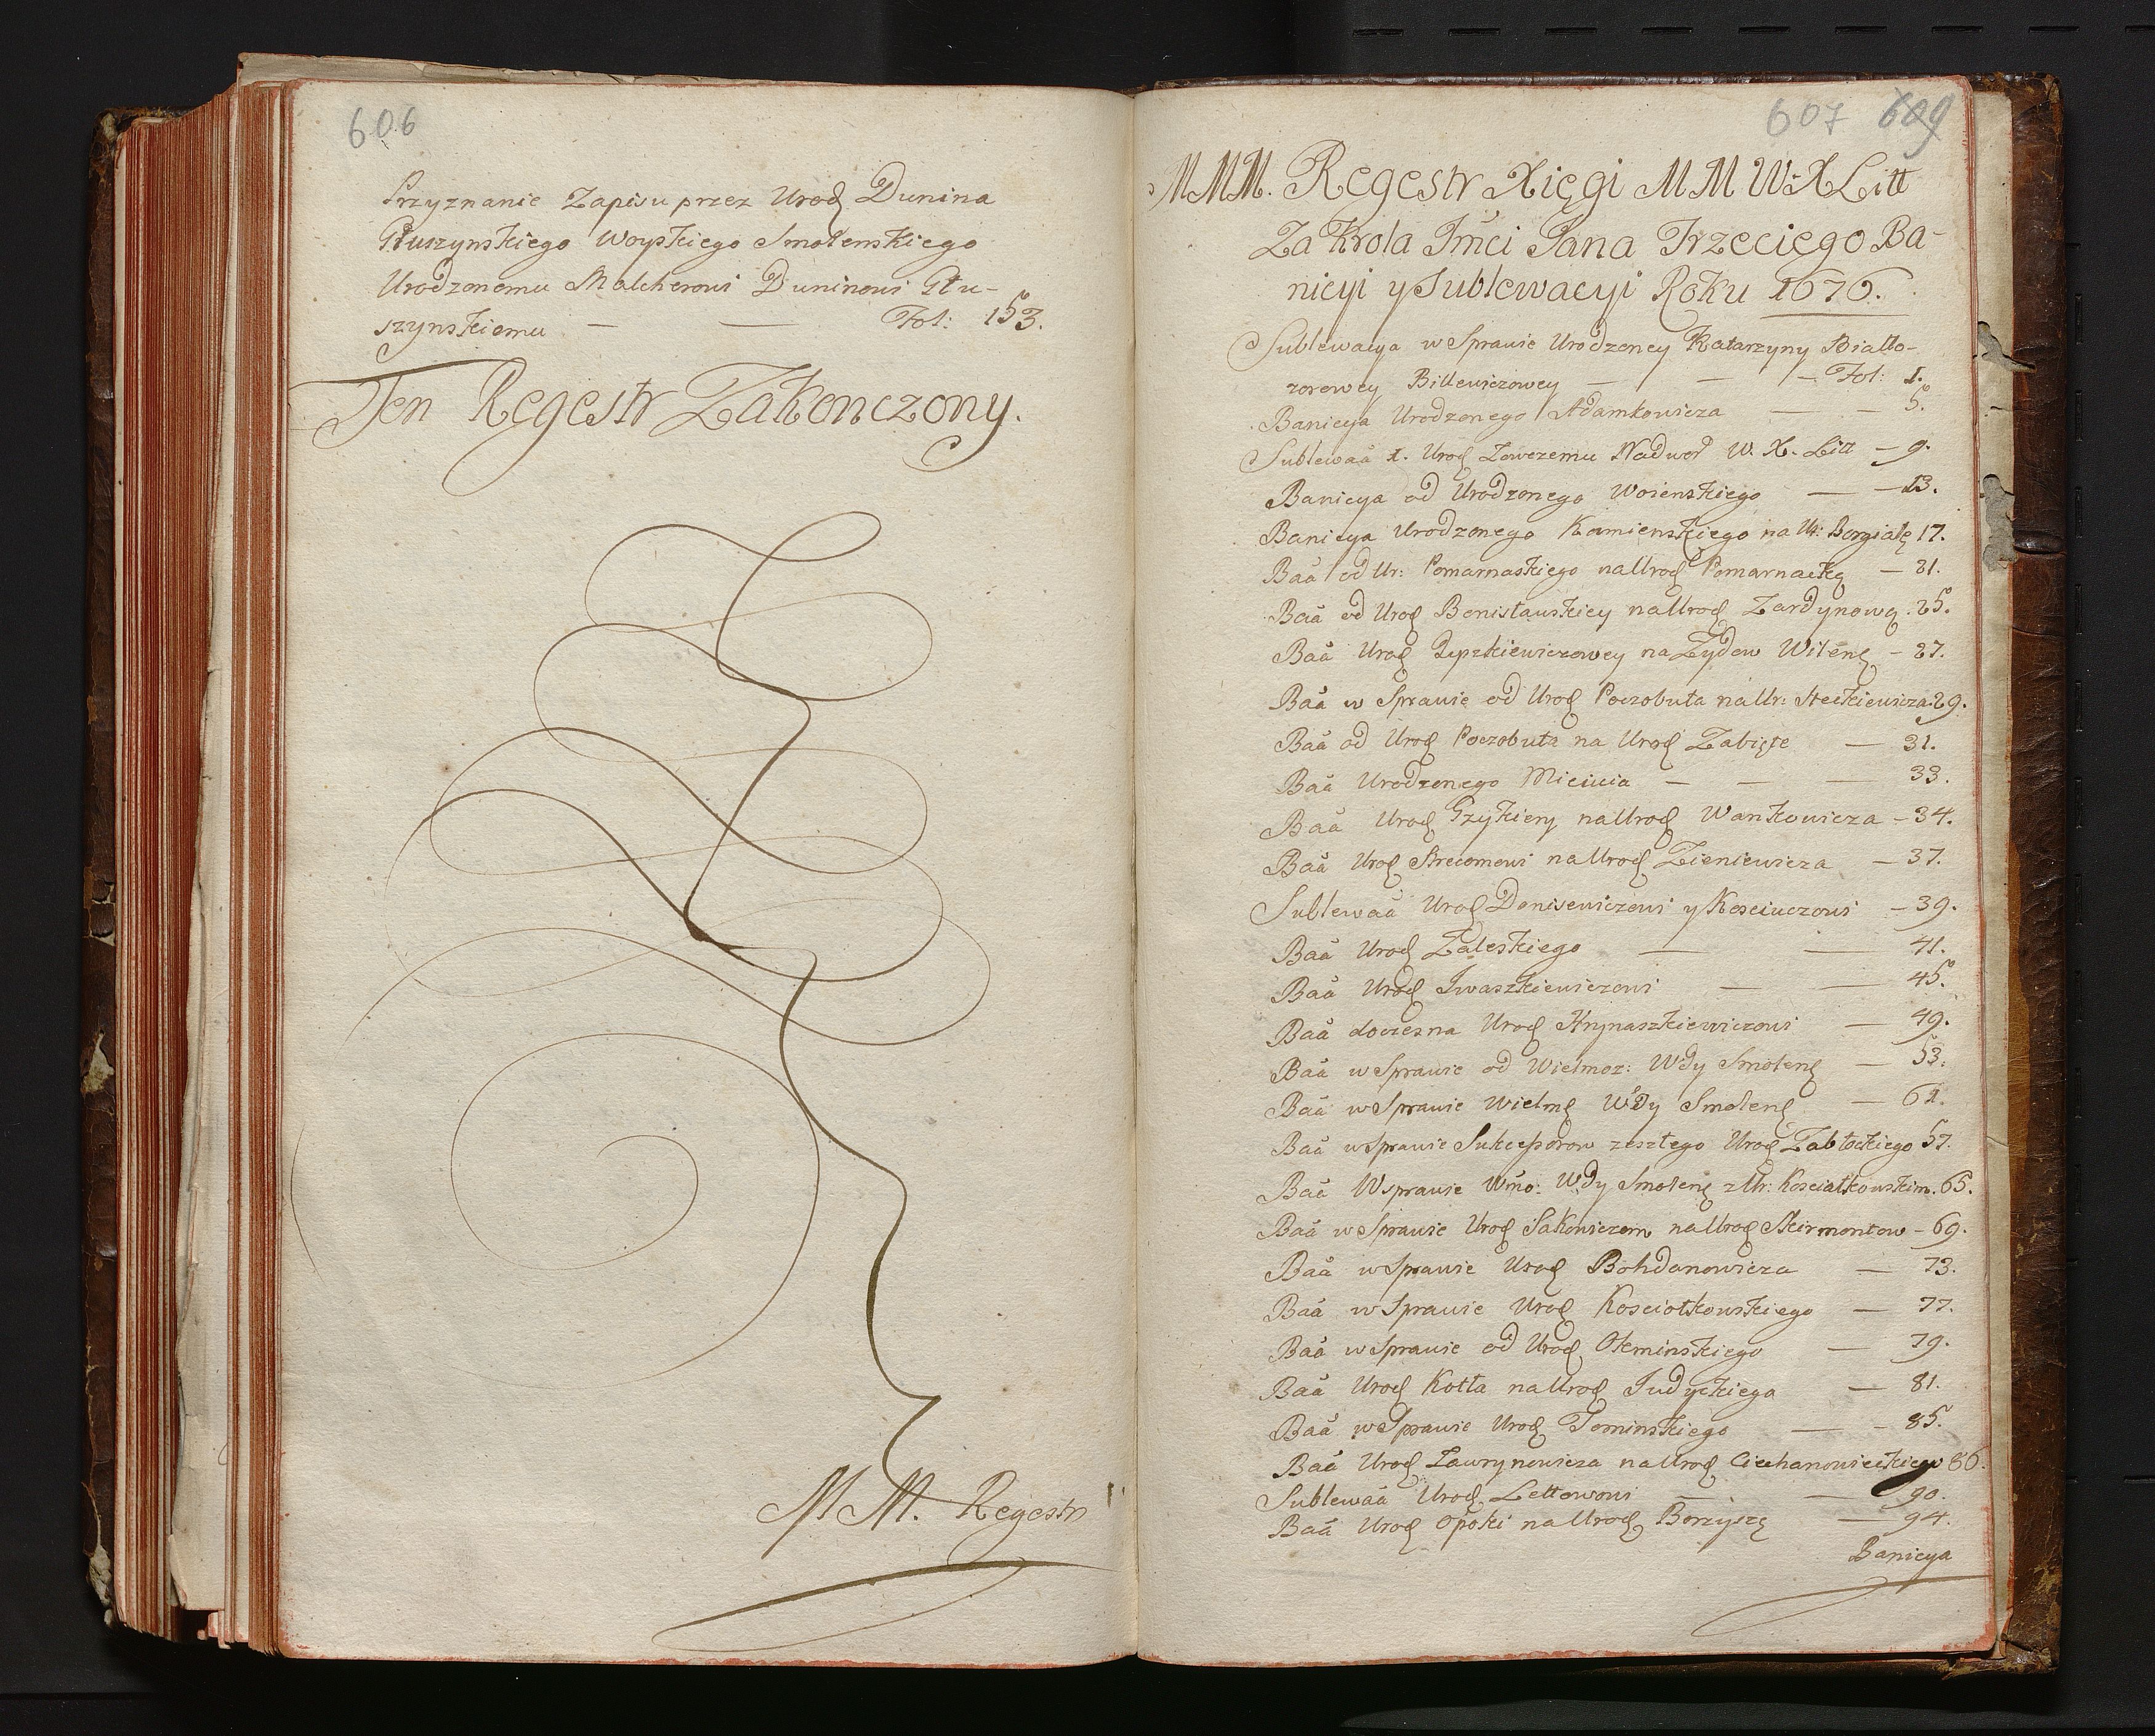 606
Przyznanie Zapisu przez Urod Dunina
Głuszynskiego Woyskiego Smolenskiego
Urodzonemu Malcherowi Duninowi Głu-
szynskiemu — — Fol: 153.
Ten Regestr Zakonczony.
M M. Regestr
607 609
M M M. Regestr Xięgi M M W X Litt
Za Krola Jmći Jana Trzeciego Ba-
nicyi y Sublewacyi Roku 1676.
Sublewacya w Sprawie Urodzoney Katarzyny Biallo-
zorowey Billewiczowey — — — Fol: 1.
Banicya Urodzonego Adamkowicza — — 5.
Sublewaa 1. Urod Łowczemu Nadwor W. X. Litt — 9.
Banicya od Urodzonego Woienskiego — — 13.
Banicya Urodzonego Kamienskiego na Ur: Borgiałę 17.
Baa od Ur: Pomarnaskiego na Urod Pomarnacką — 21.
Baa od Urod Benisławskiey na Urod Zardynową. 25.
Baa Urod Pepszkiewiczowey na Zydow Wilen — 27.
Baa w Sprawie od Urod Poczobuta na Ur: Steckiewicza. 29.
Baa od Urod Poczobuta na Urod Zabięłę — 31.
Baa Urodzonego Miciucia — — — 33.
Baa Urod na Urod Wankowicza — 34.
Baa Urod Strecomowi na Urod Zieniewicza — 37.
Sublewaa Urod Denisewiczowi y Kosciuczowi — 39.
Baa Urod Zaleskiego — — 41.
Baa Urod Iwaszkiewiczowi — — 45.
Baa doczesna Urod Hrynaszkiewiczowi — 49.
Baa w Sprawie od Wielmoz: Wdy Smolen — 53.
Baa w Sprawie Wielm Wdy Smolen — 61.
Baa w Sprawie Sukcessorow zeszłego Urod Zabłockiego 57.
Baa W sprawie Wmo: Wdy Smolen z Ur: Kosciałkowskim. 65.
Baa w Sprawie Urod Sakowiczom na Urod Skirmontow — 69.
Baa w Sprawie Urod Bohdanowicza — 73.
Baa w Sprawie Urod Kosciołkowskiego — 77.
Baa w Sprawie od Urod Oleminskiego — 79.
Baa Urod Kotła na Urod Judyckiego — 81.
Baa w Sprawie Urod Tominskiego — — 85.
Baa Urod Ławrynowicza na Urod Ciechanowieckiego 86.
Sublewaa Urod Lettowowi — — 90.
Baa Urod Opoki na Urod Borzyszę — 94.
Banicya